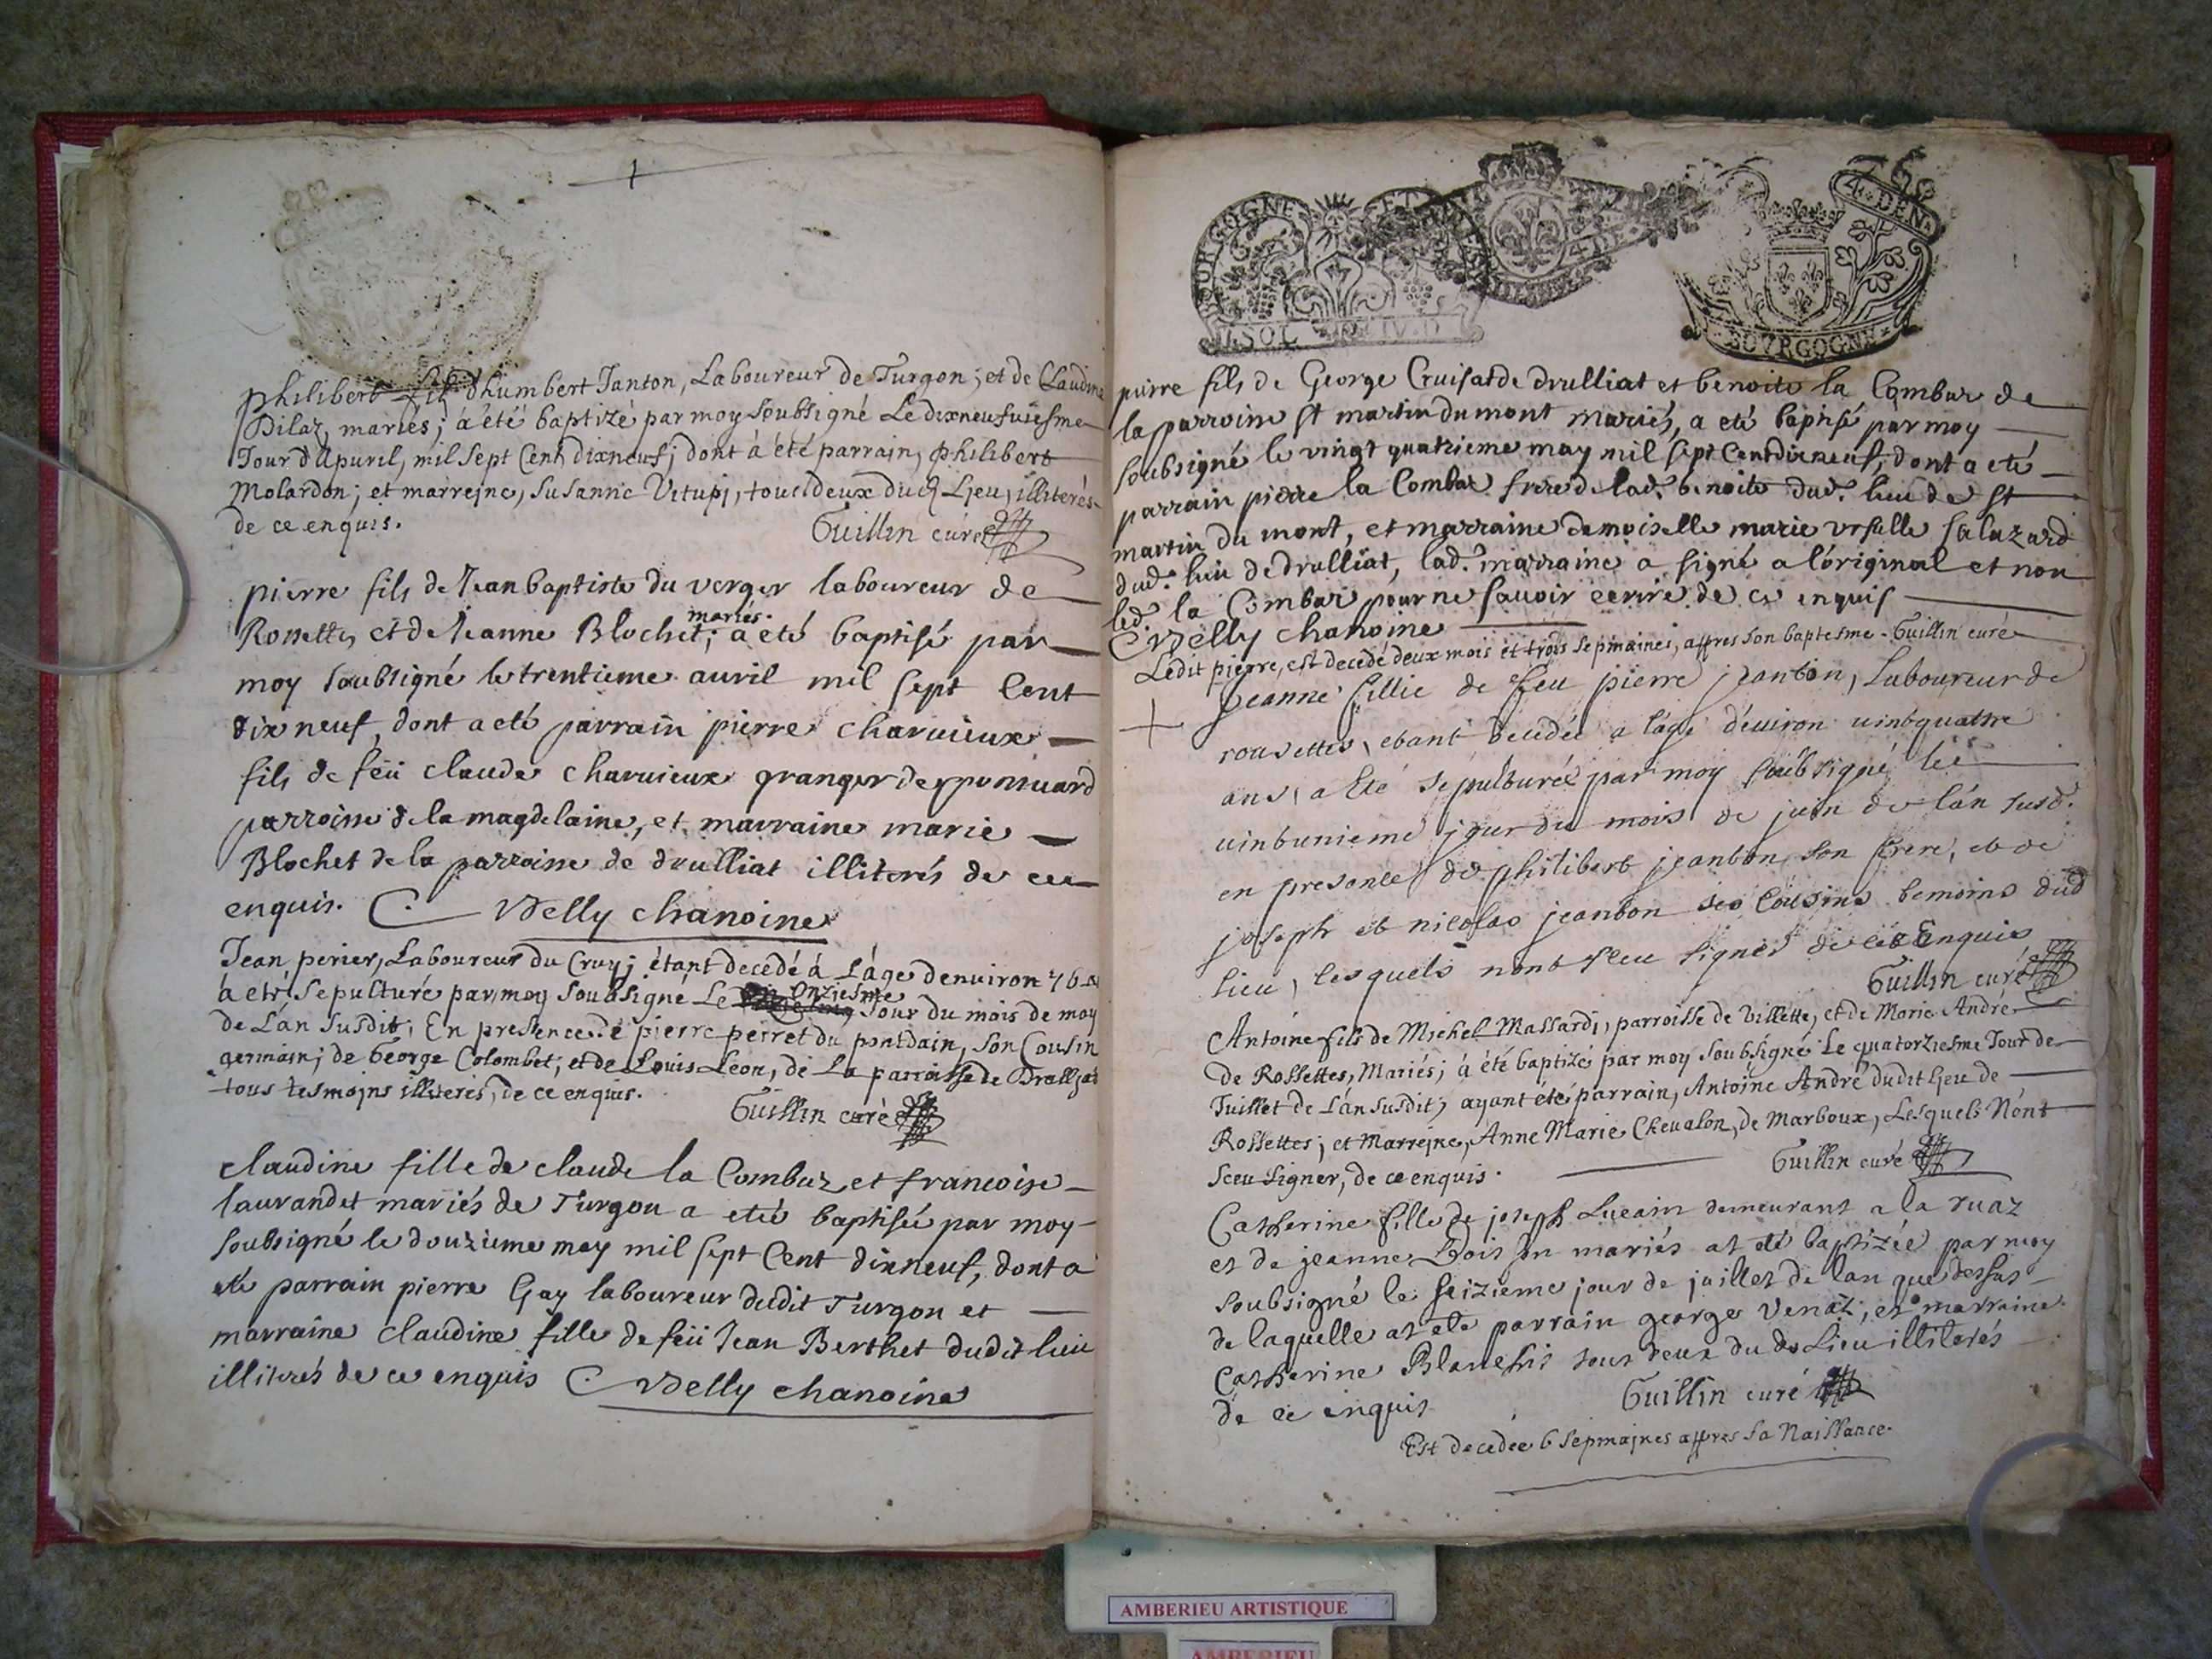 philibert fils d'humbert Janton, Laboureur de Turgon; et de Claudine
Pilaz, mariés; à été baptizé par moy soubsigné Le dixneufuiesme
Jour d'Apuril, mil sept Cent dixneuf; dont à été parrain, philibert
Molardon; et marrejne, Susanne Vitupj, tous deux dud Ljeu, illiterés
de ce enquis.
Guillin curé
pierre fils de Jean baptiste du verger laboureur de
Rossettes et de Jeanne Blochet; mariés. a eté baptisé par
moy soubsigné le trentieme auril mil sept Cent
dix neuf, dont a eté parrain pierre charuieux
fils de feü claude charuieux granger de
parroisse de la magdelaine, et marraine marie
Blochet de la parroisse de drulliat illiterés de ce
enquis. C. Velly chanoine
Jean perier, Laboureur du Cruy; étant decedé à L'âge denuiron 76
a eté, sepulturé par moy soubsigné Le onziesme Jour du mois de may
de L'an susdit; En presence de pierre perret du pontdain, son Cousin
germain; de George Colombet; et de Louis Leon, de La parroisse de Drulljat
tous tesmojns illiterés, de ce enquis.
Guillin curé
claudine fille de claude la Combaz et francoise
laurandet mariés de Turgon a eté baptisée par moy
soubsigné le douzieme may mil sept Cent dixneuf, dont a
eté parrain pierre Gay laboureur dudit Turgon et
marraine claudine fille de feü Jean Berthet dudit lieu
illiterés de ce enquis C Velly chanoine
BOURGOGNE ET
SOL
4. DEN.
BOVRGOGNE
pierre fils de George Cruisat de drulliat et benoite la Combaz de
la parroisse st martin du mont mariés, a eté baptisé par moy
soubsigné le vingt quatrieme may mil sept Cent dixneuf, dont a eté
parrain pierre la Combaz frere de lad. benoite dud. lieu de st
martin du mont, et marraine demoiselle marie vrsulle salazard
dud. lieu de drulliat, lad. marraine a signé a l'original et non
led. la Combaz pour ne sauoir ecrire de ce enquis
C Velly chanoine
Ledit pierre, est decedé deux mois et trois sepmaines, apres son baptesme. Guillin curé
jeanne fillie de feu pierre jeanton, Laboureur de
rousettes, etant decedée a l'age d'enuiron uintquattre
ans, a Eté sepulturée par moy soubsigné le
uintunieme jour du mois de juin de l'an susd.
en presence de philibert jeanton son frere, et de
joseph et nicolas jeanton ses Cousins temoins dud
lieu, lesquels n'ont sceu signer de ce Enquis
Guillin curé
Antoine fils de Michel Massardj, parroisse de Villette, et de Marie André
de Rossettes, Mariés; à été baptizé par moy soubsigné Le quatorziesme Jour de
Juillet de L'an susdit; ayant été parrain, Antoine André dudit Ljeu de
Rossettes; et Marrejne, Anne Marie Cheualon, de Marboux, Lesquels N'ont
sceu signer, de ce enquis.
Guillin curé
Catherine fille de joseph Lucain demeurant a la ruaz
et de jeanne mariés at eté baptizée par moy
soubsigné le seizieme jour de juillet de l'an que dessus
de laquelle at eté parrain george Venaz, et marraine
Catherine Blanchis tous deux du d. Lieu illiterés
de ce enquis
Guillin curé
Est decedée 6 sepmajnes apres sa Naissance.
AMBERIEU ARTISTIQUE
AMBERIEU